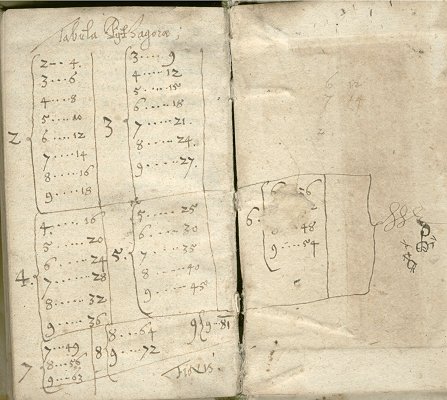 Tabula Pythagoræ;
2
2....4.
3....6
4....8
5....10
6....12
7....14
8....16
9....18
3
3....9
4....12
5....15
6....18
7....21.
8....24.
9....27.
4.
4....16
5....20
6....24
7....28
8....32
9....36
5.
5....25
6....30
7....35
8....40
9....45
6.
6....36
48
9....54
7
7...49
8...56
9...63
8
8....64
9....72
9
9..81
Finis.
6 12
7 14